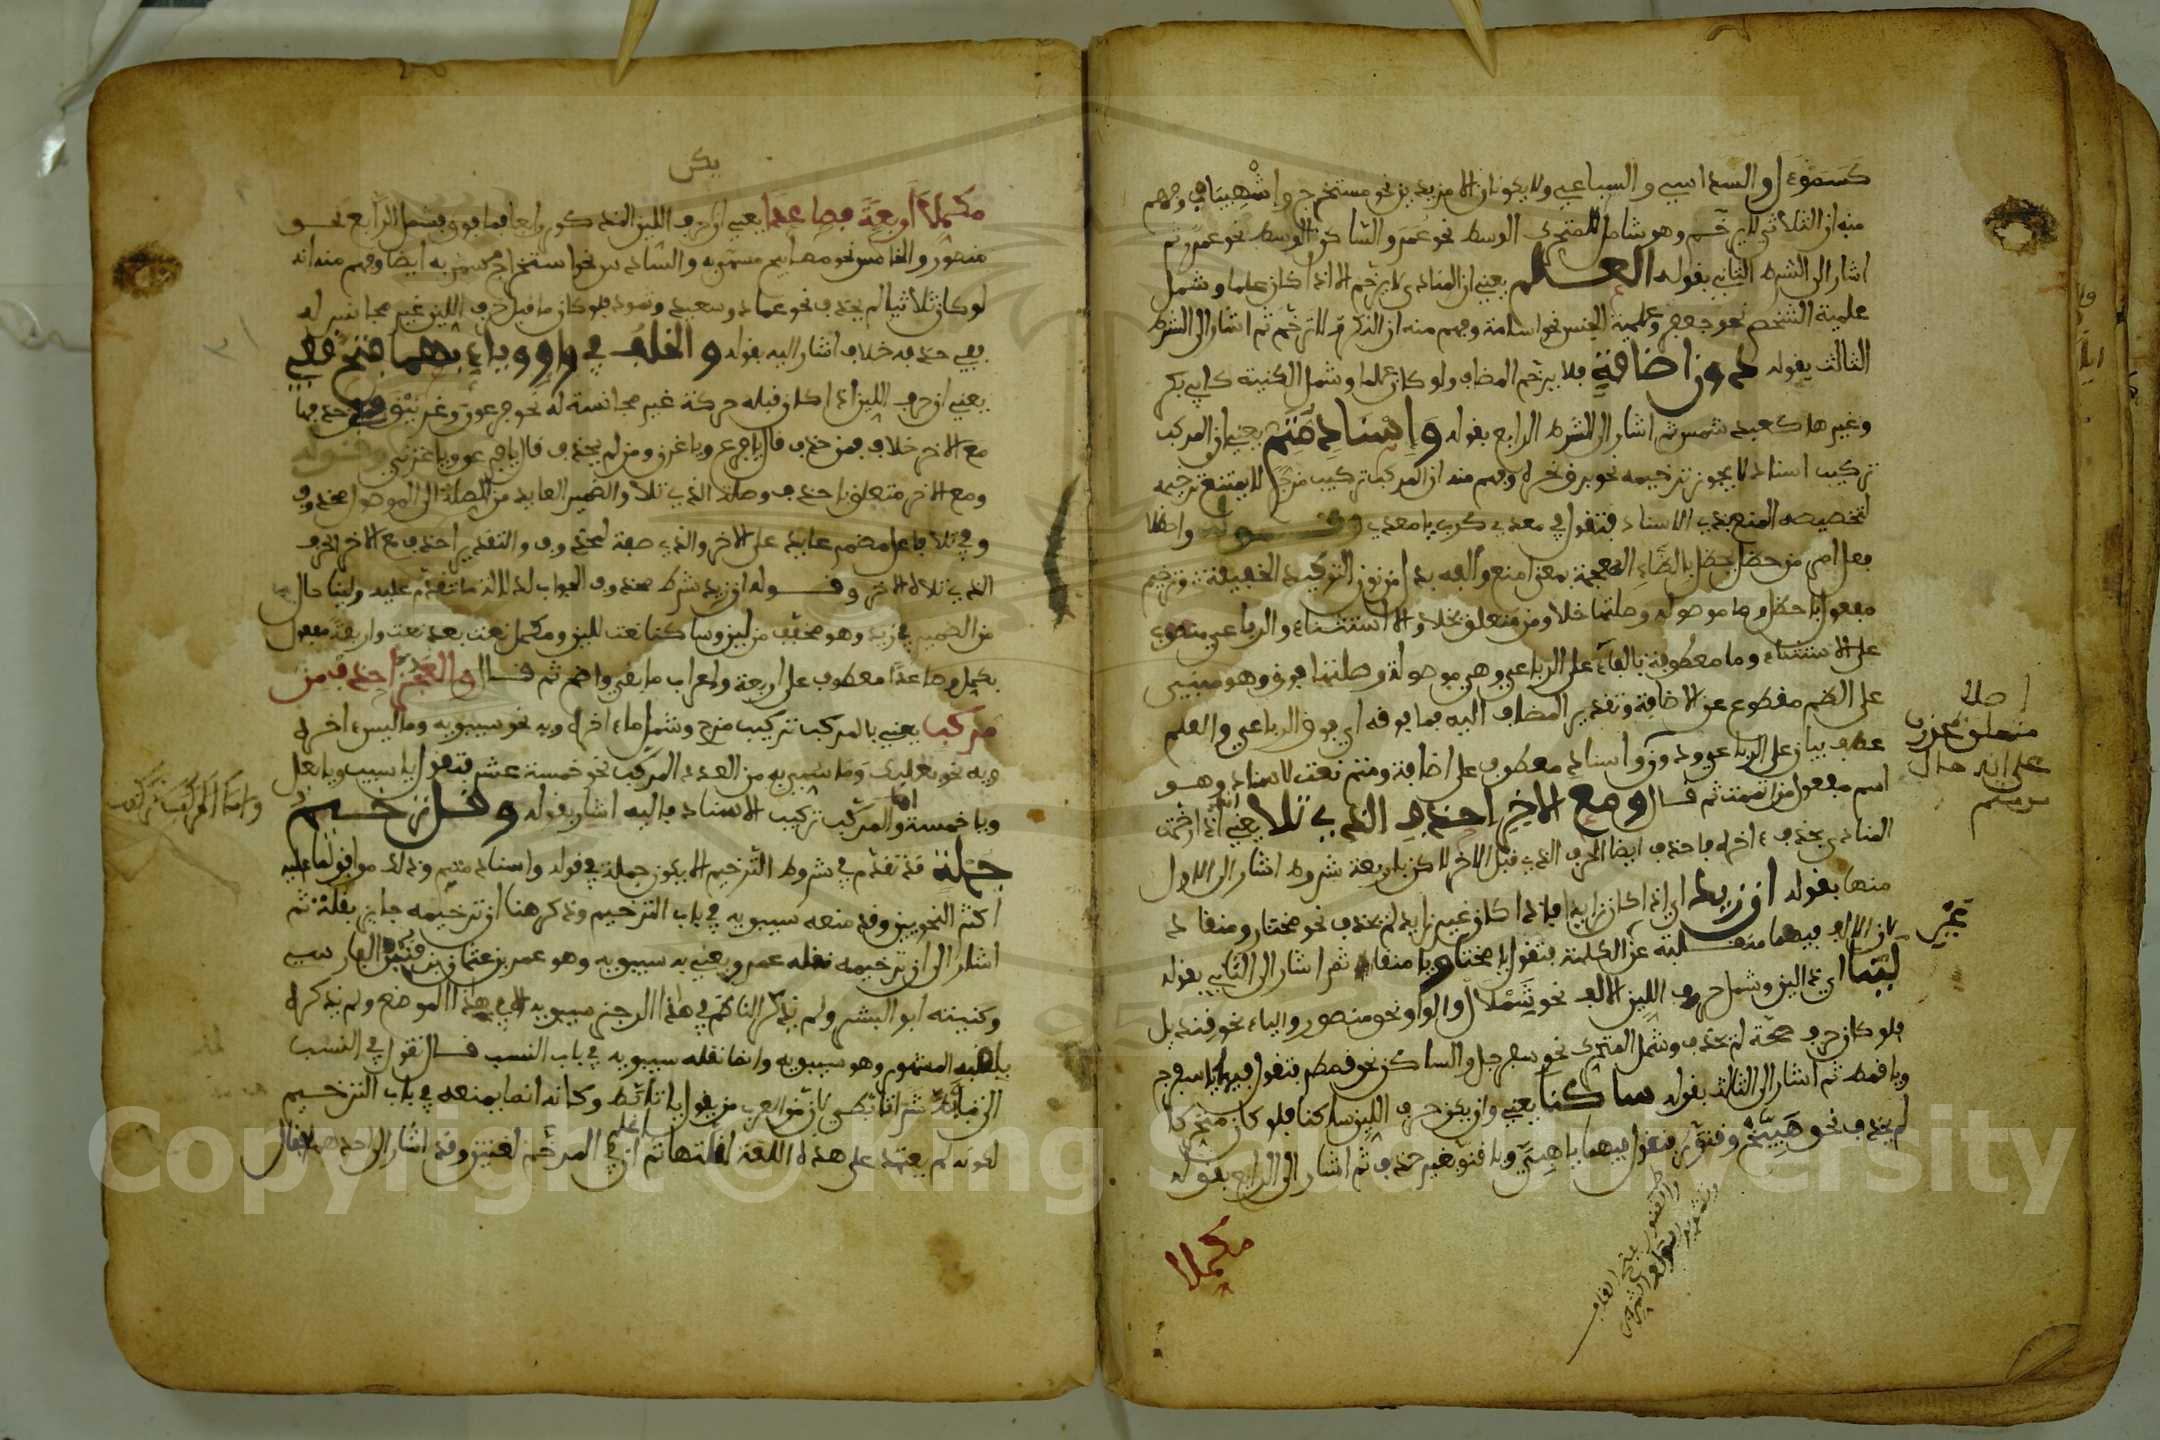 كسموءل او السداسي والسباعي ولا يكونان الا مزيدين نحو مستخرج واشهيباب وفهم
منه ان الثلاثي لا يرخم وهو شامل للمتحرك الوسط نحو عمر والساكن الوسط نحو عمرو ثم
اشار الى الشرط الثاني بقوله العلم يعني ان المنادى لا يرخم الا اذا كان علما وشمل
علمية الشخص نحو جعفر وعلمية الجنس نحو اسامة وفهم منه ان النكرة لا ترخم ثم اشار الى الشرط
الثالث بقوله دون اضافة فلا يرخم المضاف ولو كان علما وشمل الكنية كابي بكر
وغيرها كعبد شمس ثم اشار الى الشرط الرابع بقوله وإسناد متم يعني ان المركب
تركيب اسناد لا يجوز ترخيمه نحو برق نحره وفهم منه ان المركب تركيب مزج لا يمتنع ترخيمه
لتخصيصه المنع بذي الاسناد فتقول في معدي كرب يا معدي وقوله واحظلا
فعل امر من حظل يحظل بالظاء المعجمة بمعنى امنع والفه بدل من نون التوكيد الخفيفة وترخيم
مفعول باحظل وما موصولة وصلتها خلا ومن متعلق بخلا والا استثناء والرباعي منصوب
على الاستثناء وما معطوفة بالفاء على الرباعي وهي موصولة وصلتها فوق وهو مبني
على الضم مقطوع عن الاضافة وتقدير المضاف اليه فما فوقه اي فوق الرباعي والعلم
عطف بيان على الرباعي ودون واسناد معطوف على اضافة ومتم نعت لاسناد وهو
اسم مفعول من اتممت ثم قال ومع الاخر احذف الذي تلا يعني انك اذا رخمت
المنادى بحذف اخره فاحذف ايضا الحرف الذي قبل الاخر لكن باربعة شروط اشار الى الاول
منها بقوله ان زيد اي اذا كان زايدا فاذا كان غير زايد لم يحذف نحو مختار ومنقاد
لان الالف فيهما منقلبة عن الكلمة فتقول يا مختا ويا منقا ثم اشار الى الثاني بقوله
لينا اي ذا لين وشمل حروف اللين الالف نحو شملال والواو نحو منصور والياء نحو قنديل
فلو كان حرف صحة لم يحذف وشمل المتحرك نحو سفرجل والساكن نحو قمطر فتقول فيهما يا سفرج
ويا قمط ثم اشار الى الثالث بقوله ساكنا يعني وان يكون حرف اللين ساكنا فلو كان متحركا
لم يحذف نحو هبيخ وقنور فتقول فيهما يا هبي ويا قنو بغير حذف ثم اشار الى الرابع بقوله
مكملا
متعلق بمحذوف
على انه حال
بكر
مكملا أربعة فصاعدا يعني ان حرف اللين المذكور رابعا فما فوق فشمل الرابع نحو
منصور والخامس نحو مصابيح مسمى به والسادس نحو استخراج مسمى به ايضا وفهم منه انه
لو كان ثلاثيا لم يحذف نحو عماد وسعيد وثمود فلو كان ما قبل حرف اللين غير مجانس له
ففي حذفه خلاف اشار اليه بقوله والخلف في واو وياء بهما فتح قفي
يعني ان حرف اللين اذا كان قبله حركة غير مجانسة له نحو فرعون وغرنيق ففي حذفهما
مع الاخر خلاف فمن حذف قال يا فرع ويا غرن ومن لم يحذف قال يا فرعو ويا غرني وقوله
ومع الاخر متعلق باحذف وصلة الذي تلا والضمير العايد من الصلة الى الموصول محذوف
وفي تلا فاعل مضمر عايد على الاخر والذي صفة لمحذوف والتقدير احذف مع الاخر الحرف
الذي تلاه الاخر وقوله ان زيد شرط محذوف الجواب لدلالة ما تقدم عليه ولينا حال
من الضمير في زيد وهو مخفف من لين وساكنا نعت للين ومكملا نعت بعد نعت واربعة مفعول
بمكملا وصاعدا معطوف على اربعة واعراب ما بقي واضح ثم قال والعجز احذف من
مركب يعني بالمركب تركيب مزج وشمل ما ءاخره ويه نحو سيبويه وما ليس ءاخره
ويه نحو بعلبك وما سمي به من العدد المركب نحو خمسة عشر فتقول يا سيب ويا بعل
ويا خمسة واما المركب تركيب الاسناد فاليه اشار بقوله وقل ترخيم
جملة قد تقدم في شروط الترخيم الا يكون جملة في قوله واسناد متم وذلك موافق لما عليه
اكثر النحويين وقد منعه سيبويه في باب الترخيم وذكر هنا ان ترخيمه جايز بقلة ثم
اشار الى ان ترخيمه نقله عمرو يعني به سيبويه وهو عمر بن عثمان بن قنبر الفارسي
وكنيته ابو البشر ولم يذكر الناظم في هذا الرجز سيبويه الا في هذا الموضع ولم يذكره
بلقبه المشهور وهو سيبويه وانما نقله سيبويه في باب النسب قال تقول في النسب
الى تأبط شرا تأبطي لان من العرب من يقول يا تأبط وكانه انما منعه في باب الترخيم
لكونه لم يعتمد على هذه اللغة لقلتها ثم ان في المرخم لغتين وقد اشار الى احدهما فقال
واما المركب تركيب